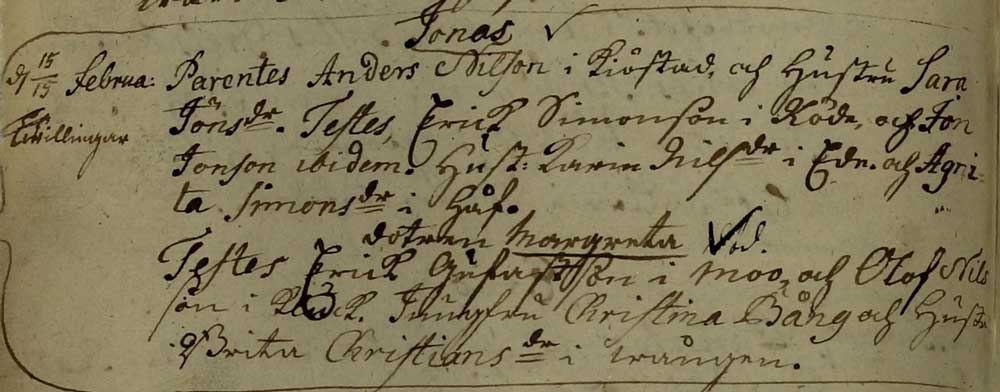 Jonas
d 15/15 Februa: Parentes Anders Nilson i Kiöstad, och Hustru Sara
Twillingar
Jönsdr. Testes, Erick Simonson i Röde, och Jon
Jonson ibidem. Hust: Karin Nilsdr i Ede. och Agni-
ta Simonsdr i Håf.
dotren Margreta död.
Testes Erick Gustafsson i Moo, och Olof Nils
son i Jungfru Christina Bång och Hustr
Brita Christiansdr i wången.